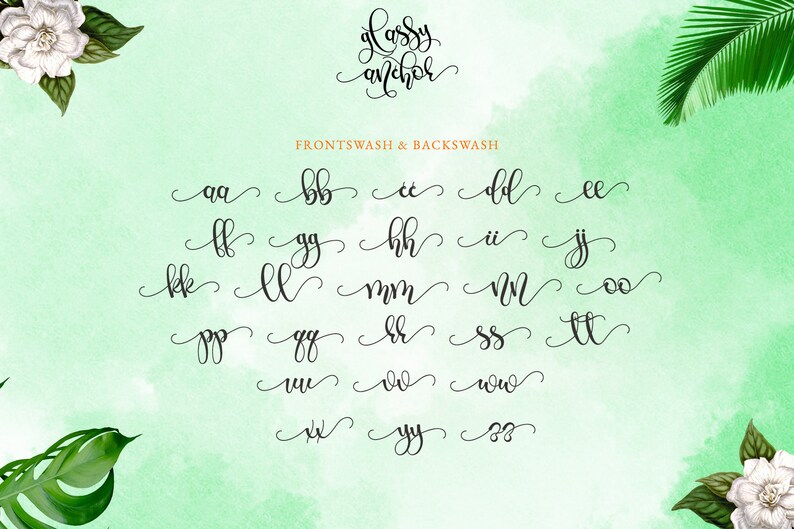 glassy
anchor
FRONTSWASH & BACKSWASH
aa bb cc dd ee
ff gg hh ii jj
kk ll mm nn oo
pp qq rr ss tt
uu vv ww
xx yy zz